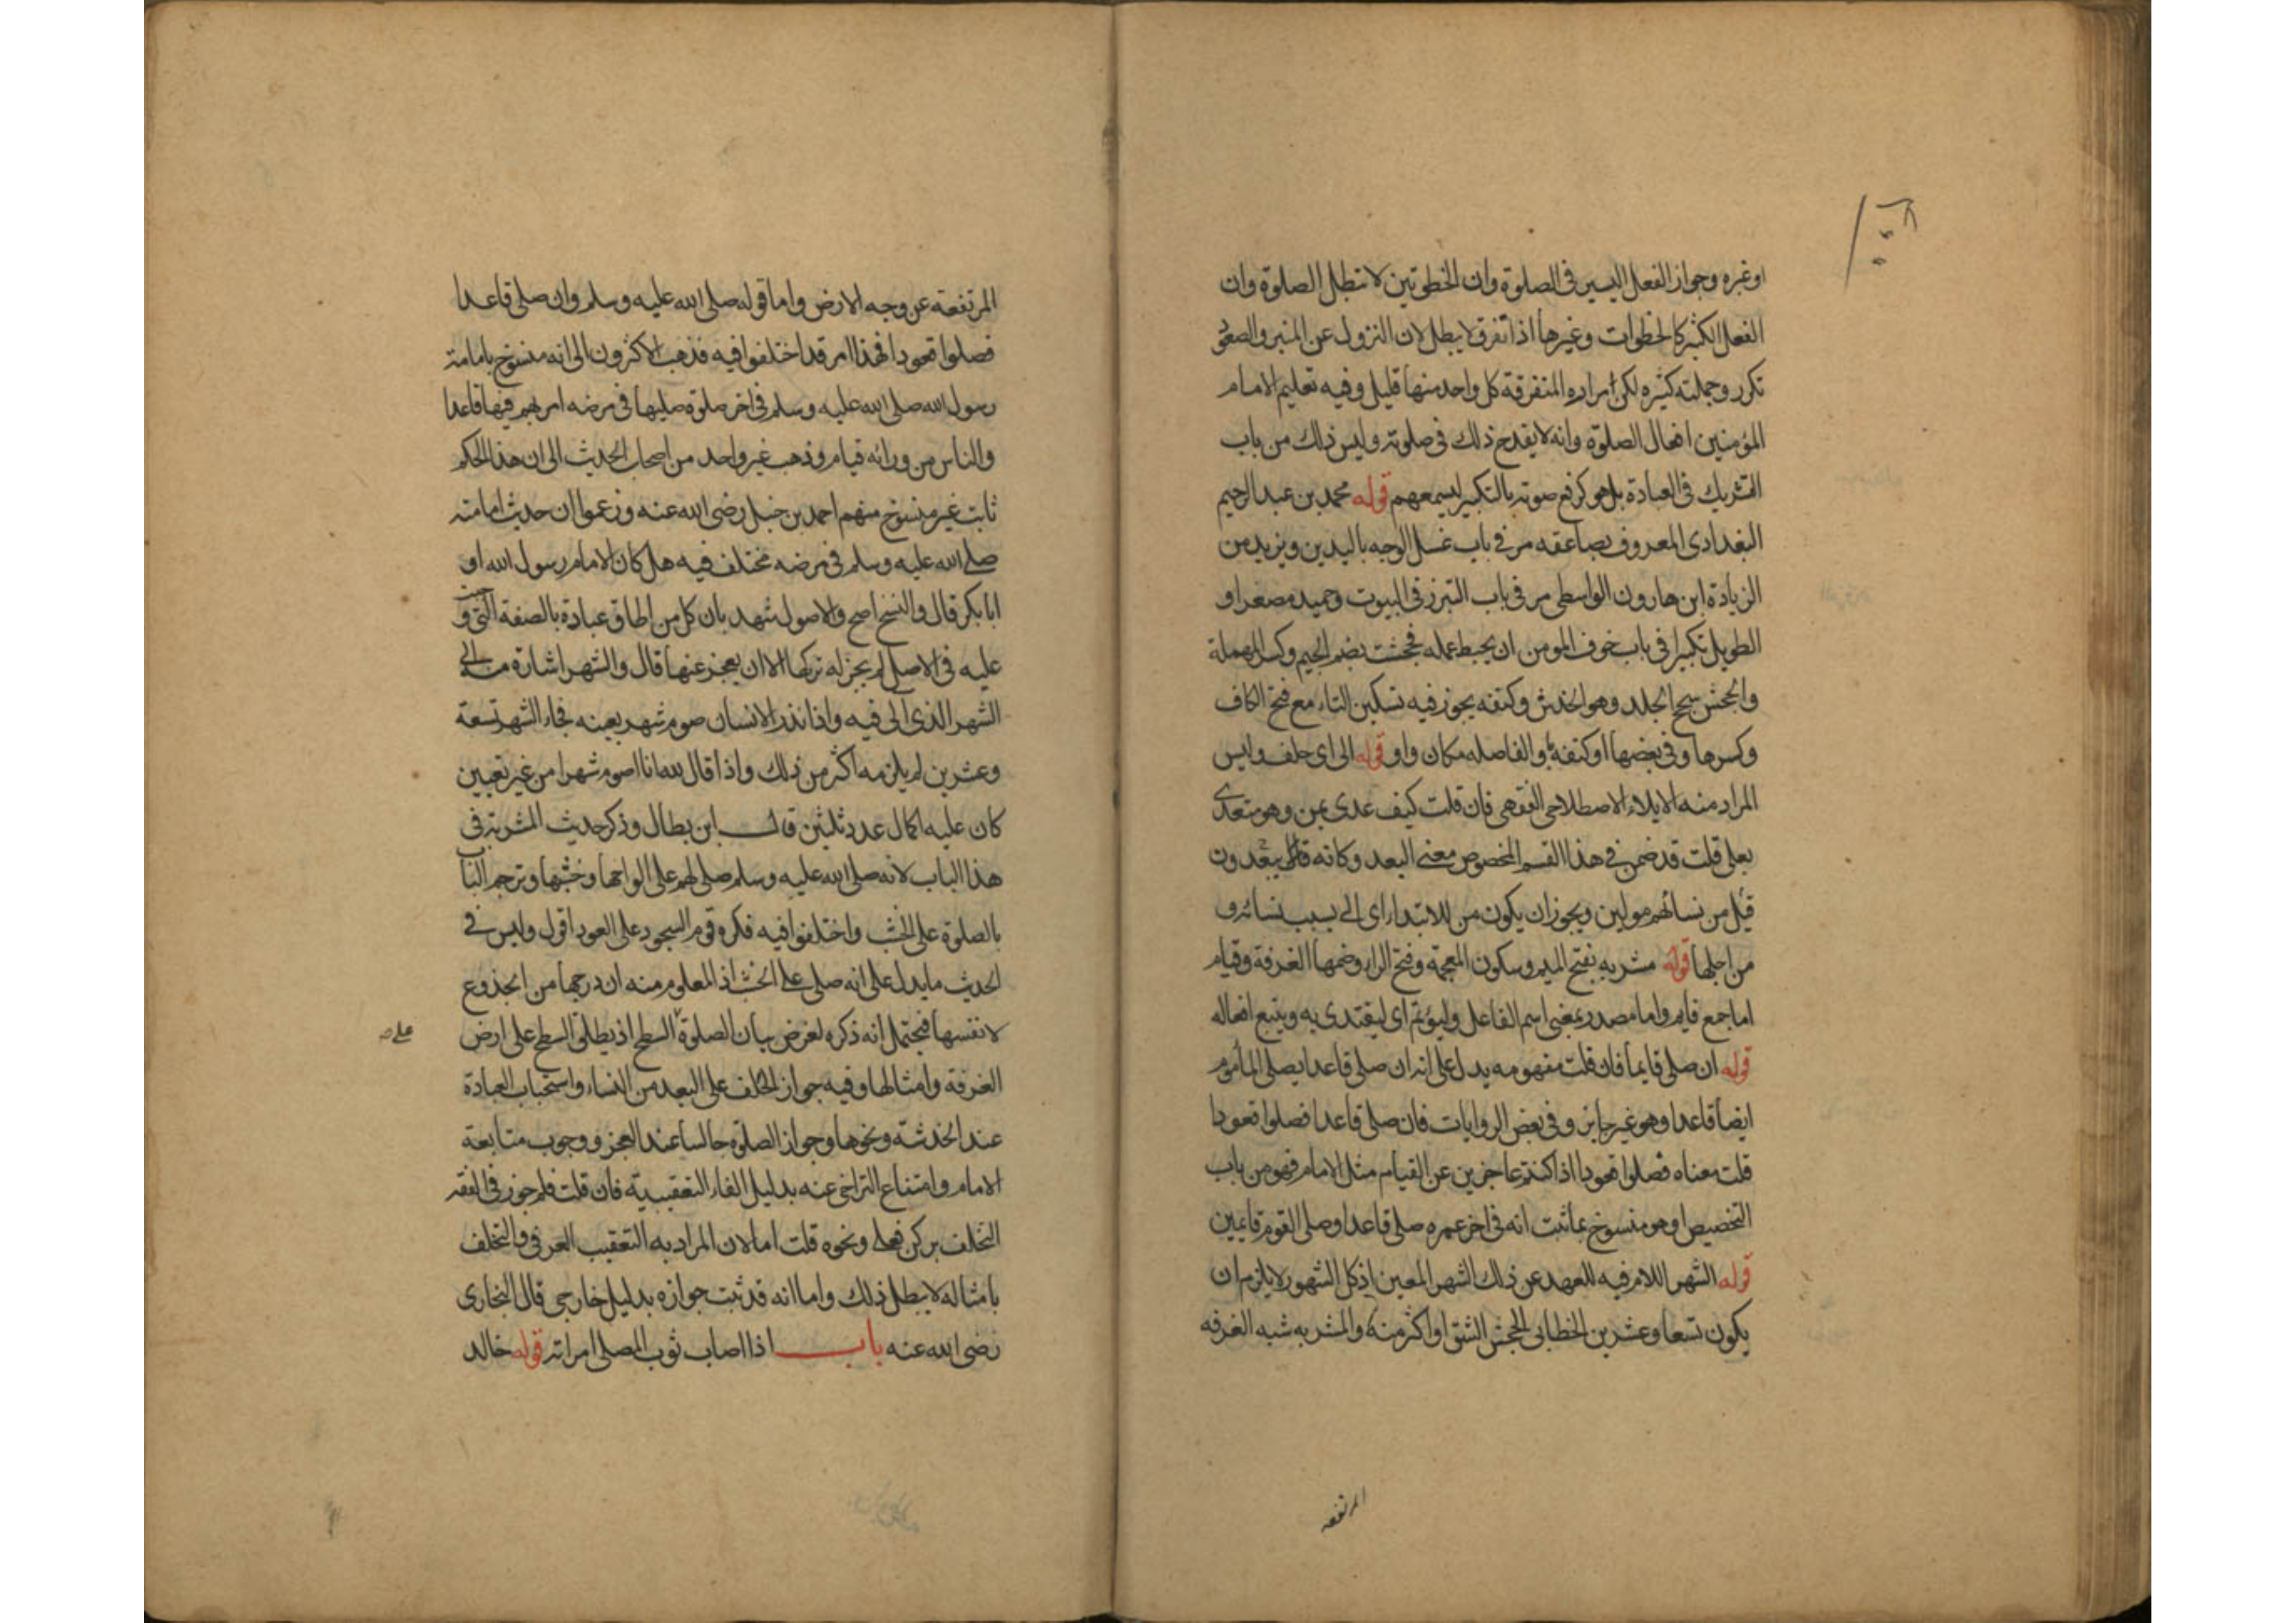 او غيره وجواز الفعل اليسير فى الصلوة وان الخطوتين لا تبطل الصلوة وان
الفعل الكثير كالخطوات وغيرها اذا تفرق لا يبطل لان النزول عن المنبر والصعود
تكرر وجملته كثيره لكن افراده المتفرقة كل واحد منها قليل وفيه تعليم الامام
المؤمنين افعال الصلوة وانه لا يقدح ذلك فى صلوته وليس ذلك من باب
التشريك فى العبادة بل هو كرفع صوته بالتكبير ليسمعهم قوله محمد بن عبد الرحيم
البغدادى المعروف بصاعقه مر فى باب غسل الوجه باليدين ويزيد من
الزيادة ابن هارون الواسطى مر فى باب التبرز فى البيوت وحميد مصغرا و
الطويل تكبيرا فى باب خوف المومن ان يحبط عمله فجحشت بضم الجيم وكسر المهملة
والجحش سحج الجلد وهو الخدش وكتفه يجوز فيه تسكين التاء مع فتح الكاف
وكسرها وفى بعضها او كتفه باو الفاصله مكان واو قوله الى اى حلف وليس
المراد منه الايلاء الاصطلاحى الفقهى فان قلت كيف عدى بمن وهو متعدى
بعلى قلت قد ضمن فى هذا القسم المخصوص معنى البعد وكانه قال يبعدون
قيل من نسائهم مولين ويجوز ان يكون من للابتداء اى الى بسبب نسائه و
من اجلها قوله مشربه بفتح الميم وسكون المعجمة وفتح الراء وضمها الغرفة وقيام
اما جمع قايم واما مصدر بمعنى اسم الفاعل وليؤتم اى ليقتدى به ويتبع افعاله
قوله ان صلى قايما فان قلت مفهومه يدل على انه ان صلى قاعدا يصلى المأموم
ايضا قاعدا وهو غير جايز وفى بعض الروايات فان صلى قاعدا فصلوا قعودا
قلت معناه فصلوا قعودا اذا كنتم عاجزين عن القيام مثل الامام فهو من باب
التخصيص او هو منسوخ بما ثبت انه فى اخر عمره صلى قاعدا وصلى القوم قايمين
قوله الشهر اللام فيه للعهد عن ذلك الشهر المعين اذ كل الشهور لا يلزم ان
يكون تسعا وعشرين الخطابى الجحش الشق او اكثر منه والمشربه شبه الغرفه
المرتفعه
المرتفعة عن وجه الارض واما قوله صلى الله عليه وسلم وان صلى قاعدا
فصلوا قعودا فهذا امر قد اختلفوا فيه فذهب الاكثرون الى انه منسوخ بامامة
رسول الله صلى الله عليه وسلم فى اخر صلوة صليها فى مرضه امر بهم فيها قاعدا
والناس من ورائه قيام وذهب غير واحد من اصحاب الحديث الى ان هذا الحكم
ثابت غير منسوخ منهم احمد بن حنبل رضى الله عنه وزعموا ان حديث امامته
صلى الله عليه وسلم فى مرضه مختلف فيه هل كان الامام رسول الله او
ابا بكر قال والنسخ اصح والاصول تشهد بان كل من اطاق عبادة بالصفة التى وجبت
عليه فى الاصل لم يجز له تركها الا ان يعجز عنها قال والشهر اشارة منه الى
الشهر الذى الى فيه واذا نذر الانسان صوم شهر بعينه فجاء الشهر تسعة
وعشرين لم يلزمه اكثر من ذلك واذا قال لله انا اصوم شهرا من غير تعيين
كان عليه اكمال عدد ثلثين قال ابن بطال وذكر حديث المشربة فى
هذا الباب لانه صلى الله عليه وسلم صلى لهم على الواحها وخشبها وترجم البا
بالصلوة على الخشب واختلفوا فيه فكره قوم السجود على العود اقول وليس فى
الحديث ما يدل على انه صلى على الخشب اذ المعلوم منه ان درجها من الجذوع
لا نفسها فيحتمل انه ذكره لغرض بيان الصلوة السطح اذ يطلق السطح على ارض
على صح
الغرفة وامثالها وفيه جواز الحلف على البعد من النساء واستحباب العيادة
عند الخدشة ونحوها وجواز الصلوة جالسا عند العجز ووجوب متابعة
الامام وامتناع التراخى عنه بدليل الفاء التعقيبية فان قلت فلم جوز فى الفقه
التخلف بركن فعلى ونحوه قلت اما لان المراد به التعقيب العرفى والتخلف
بامثاله لا يبطل ذلك واما انه قد ثبت جوازه بدليل خارجى قال البخارى
رضى الله عنه باب اذا اصاب ثوب المصلى امراته قوله خالد